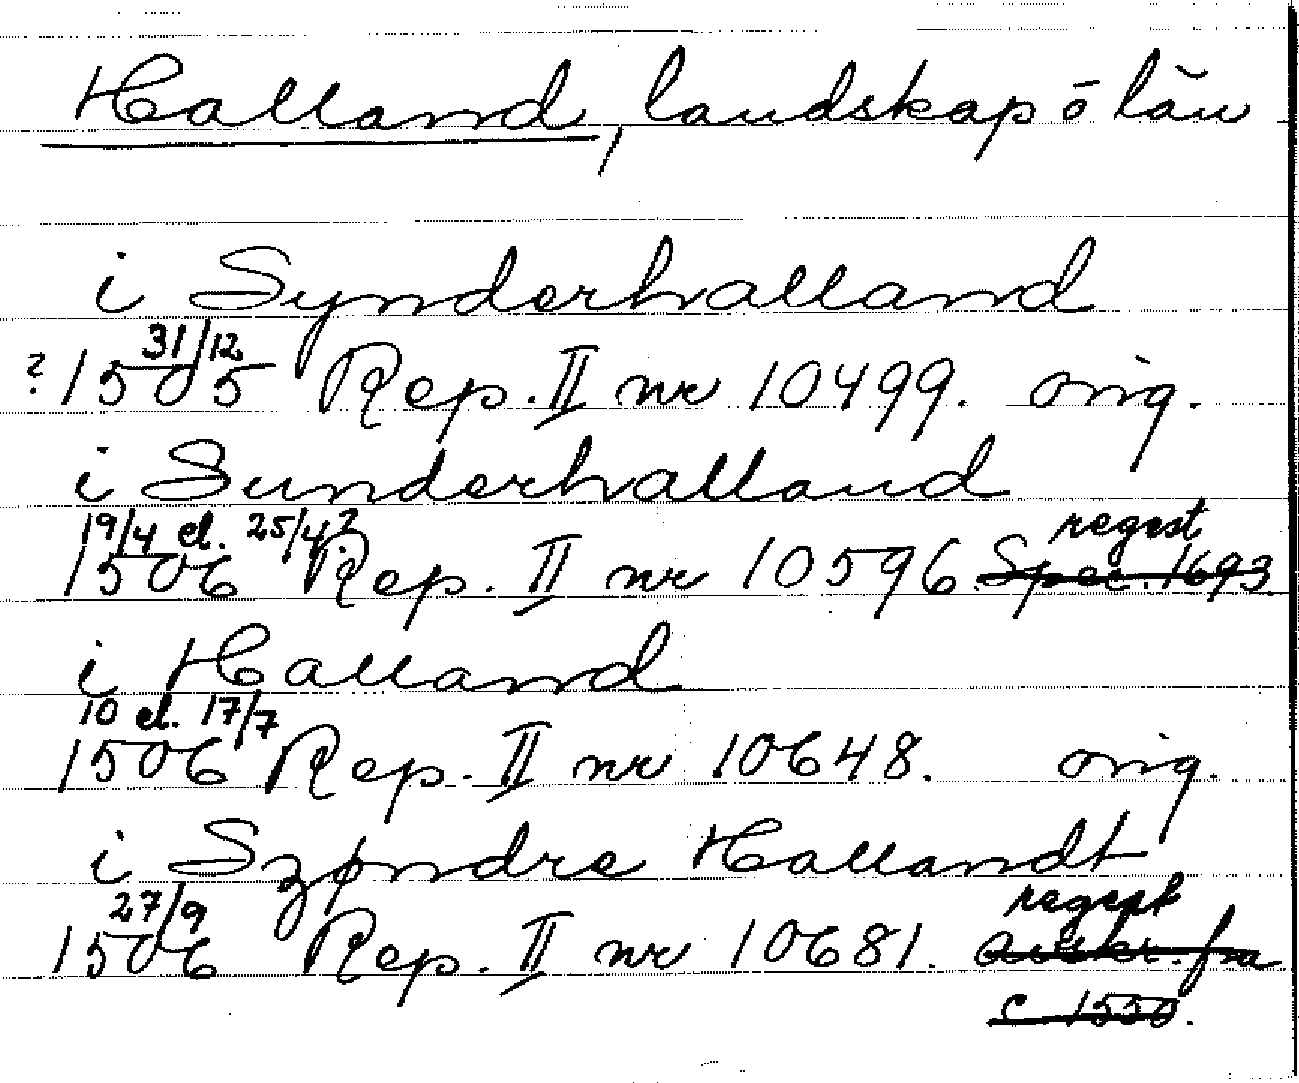 Halland, landskap ō län
i Synderhalland
31/12
? 1505 Rep. II nr 10499. orig.
i Sunderhalland
19/4 el. 25/4? regest
1506 Rep. II nr 10596. Spec. 1693.
i Halland
10 el. 17/7
1506 Rep. II nr 10648. orig.
i Szøndre Hallandt
27/9 regest
1506 Rep. II nr 10681. avskr. fra
c 1550.